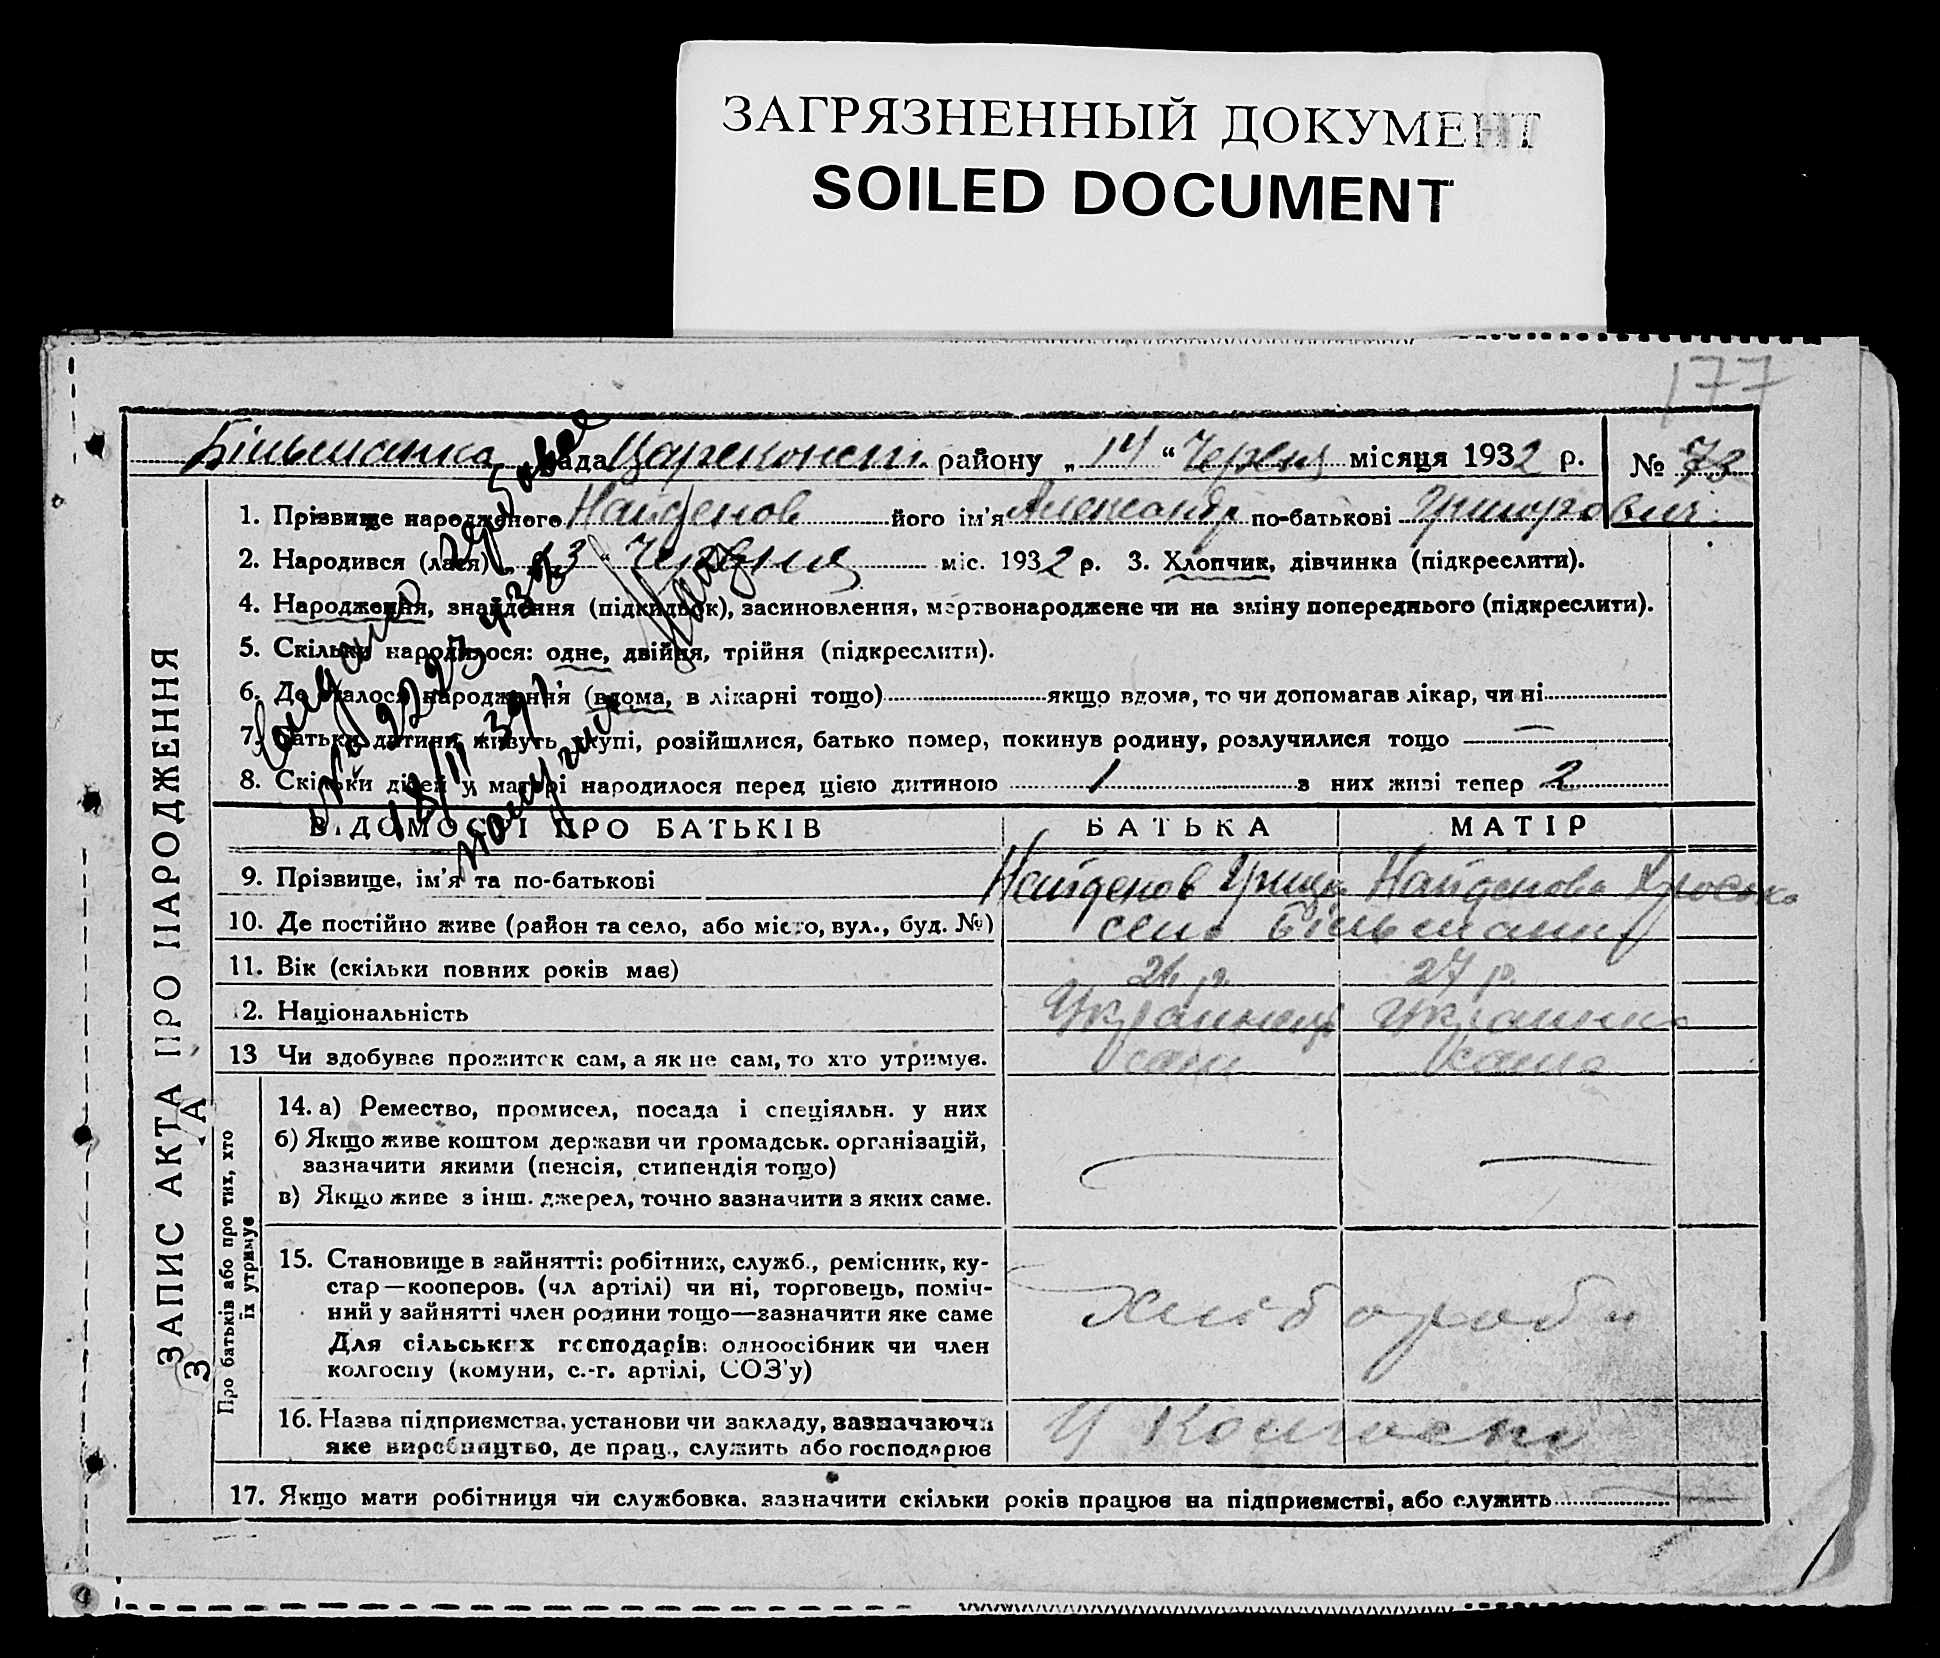 ЗАГРЯЗНЕННЫЙ ДОКУМЕНТ
SOILED DOCUMENT
177
Більманка рада Цареконст. району „ 14 “ Червня місяця 1932 р. № 73
1. Прізвище народженого Найденов його ім'я Александр по-батькові Григорович
2. Народився (лася) „ 13 “ Червня міс. 1932 р. 3. Хлопчик, дівчинка (підкреслити).
4. Народження, знайдення (підкидьок), засиновлення, мертвонароджене чи на зміну попереднього (підкреслити).
5. Скільки народилося: одне, двійня, трійня (підкреслити).
6. Де сталося народження (вдома, в лікарні тощо) якщо вдома, то чи допомагав лікар, чи ні
7. Батьки дитини живуть вкупі, розійшлися, батько помер, покинув родину, розлучилися тощо —
8. Скільки дітей у матері народилося перед цією дитиною 1 з них живі тепер 2
18/II 39
ВІДОМОСТІ ПРО БАТЬКІВ БАТЬКА МАТІР
9. Прізвище, ім'я та по-батькові Найденов Гриць Найденова
10. Де постійно живе (район та село, або місто, вул., буд. №) село Більманка
11. Вік (скільки повних років має) 26 р. 27 р.
12. Національність Украинець Украинка
13 Чи здобуває прожиток сам, а як не сам, то хто утримує. сам сама
14. а) Ремество, промисел, посада і спеціяльн. у них
б) Якщо живе коштом держави чи громадськ. організацій,
зазначити якими (пенсія, стипендія тощо) — —
в) Якщо живе з інш. джерел, точно зазначити з яких саме.
15. Становище в зайнятті: робітник, служб., ремісник, ку-
стар—кооперов. (чл артілі) чи ні, торговець, поміч-
ний у зайнятті член родини тощо—зазначити яке саме
Для сільських господарів: одноосібник чи член
колгоспу (комуни, с.-г. артілі, СОЗ'у)
хлібороби
16. Назва підприємства, установи чи закладу, зазначаючи
яке виробництво, де прац., служить або господарює
У Колгоспі
17. Якщо мати робітниця чи службовка, зазначити скільки років працює на підприємстві, або служить
ЗАПИС АКТА ПРО НАРОДЖЕННЯ
ЗА
Про батьків або про тих, хто
їх утримує